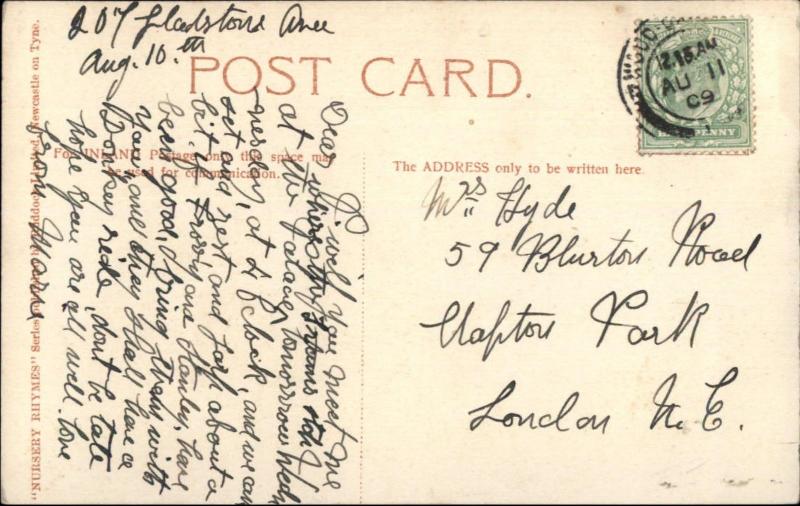 207 Gladstone Avee
Aug. 10.th
POST CARD.
For INLAND Postage only this space may
be used for communication.
The ADDRESS only to be written here.
"NURSERY RHYMES" Series Limited, Newcastle on Tyne.
Dear will you meet me
where the trams stop
at the Palace, tomorrow Wed-
nesday, at 2 o'clock, and we can
set and rest and talk about a
bit. If and Stanley, have
been good, bring them with
you and they shall have a
Donkey ride, dont be late
hope you are all well. love
from
Mrs Hyde
59 Blurton Road
Clapton Park
London N.E.
12.15 AM
AU 11
09
HALFPENNY